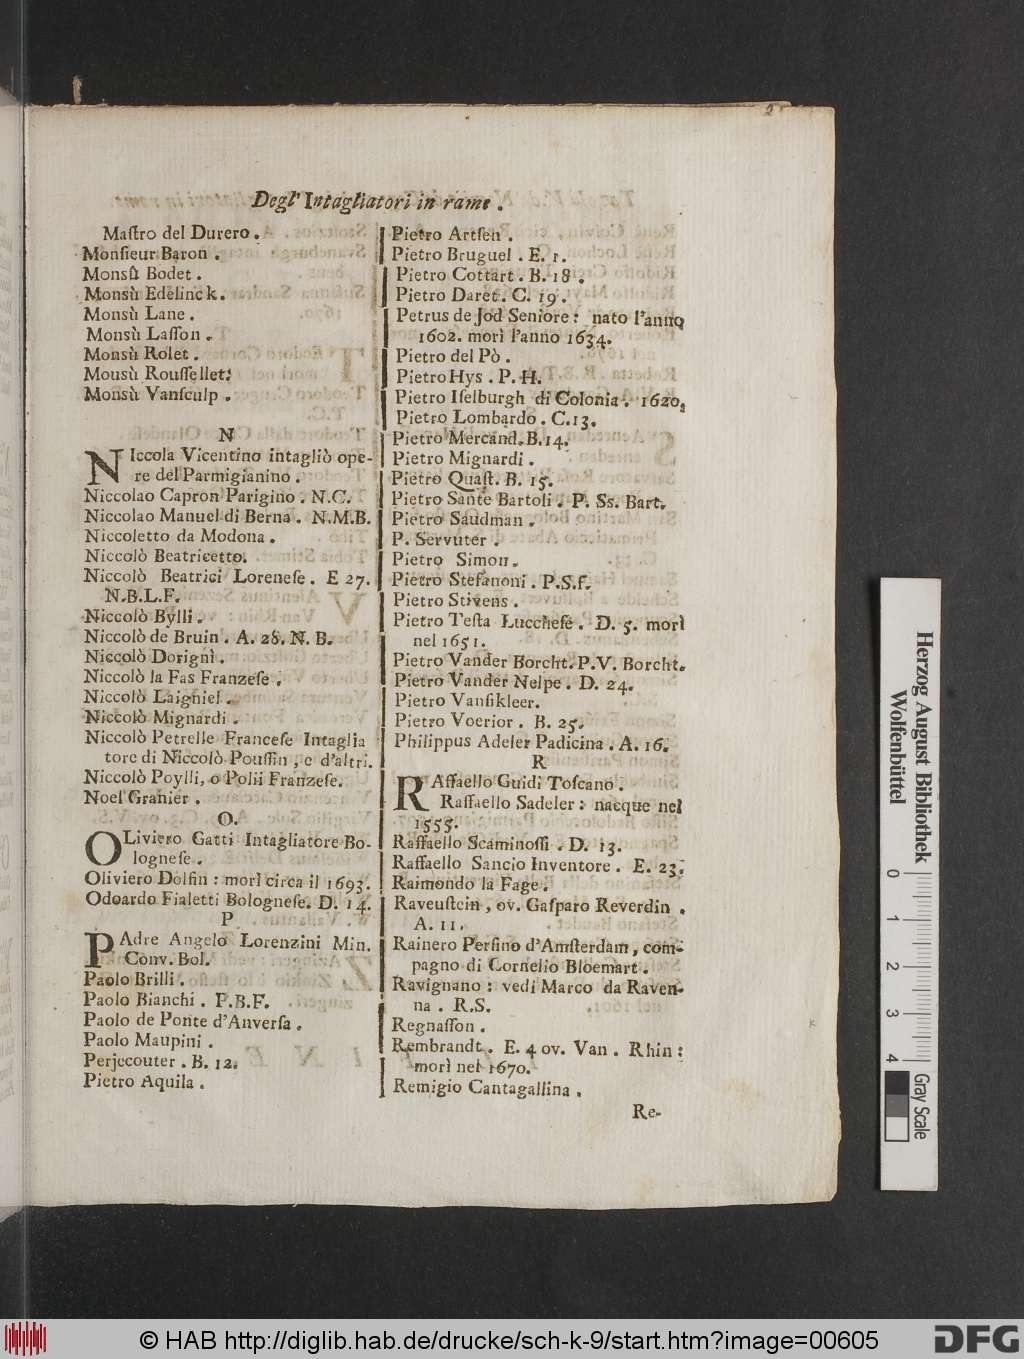 Degl' Intagliatori in rame .
Maſtro del Durero .
Monſieur Baron .
Monsù Bodet .
Monsù Edelinck .
Monsù Lane .
Monsù Laſſon .
Monsù Rolet .
Mousù Rouſſellet.
Monsù Vanſculp .
N
NIccola Vicentino intagliò ope-
re del Parmigianino .
Niccolao Capron Parigino . N.C.
Niccolao Manuel di Berna . N.M.B.
Niccoletto da Modona .
Niccolò Beatricetto.
Niccolò Beatrici Loreneſe . E 27.
N.B.L.F.
Niccolò Bylli .
Niccolò de Bruin . A. 28. N. B.
Niccolò Dorignì .
Niccolò la Fas Franzeſe .
Niccolò Laigniel .
Niccolò Mignardi .
Niccolò Petrelle Franceſe Intaglia
tore di Niccolò Pouſſin , e d'altri.
Niccolò Poylli, o Polii Franzeſe.
Noel Granier .
O.
OLiviero Gatti Intagliatore Bo-
logneſe .
Oliviero Dolfin : morì circa il 1693.
Odoardo Fialetti Bologneſe. D. 14.
P
PAdre Angelo Lorenzini Min.
Conv. Bol.
Paolo Brilli .
Paolo Bianchi . P.B.F.
Paolo de Ponte d'Anverſa .
Paolo Maupini .
Perjecouter . B. 12.
Pietro Aquila .
Pietro Artſen .
Pietro Bruguel . E. 1.
Pietro Cottart . B. 18 .
Pietro Daret. C. 19 .
Petrus de Jod Seniore : nato l'anno
1602. morì l'anno 1634.
Pietro del Pò .
Pietro Hys . P. H.
Pietro Iſelburgh di Colonia . 1620.
Pietro Lombardo . C.13.
Pietro Mercand. B.14.
Pietro Mignardi .
Pietro Quaſt. B. 15.
Pietro Sante Bartoli . P. Ss. Bart.
Pietro Saudman .
P. Servuter .
Pietro Simon.
Pietro Stefanoni . P.S.f.
Pietro Stivens .
Pietro Teſta Luccheſe . D. 5. morì
nel 1651.
Pietro Vander Borcht. P.V. Borcht.
Pietro Vander Nelpe . D. 24.
Pietro Vanſikleer.
Pietro Voerior . B. 25.
Philippus Adeler Padicina . A. 16.
R
RAffaello Guidi Toſcano .
Raffaello Sadeler : nacque nel
1555.
Raffaello Scaminoſſi . D. 13.
Raffaello Sancio Inventore . E. 23.
Raimondo la Fage .
Raveuſtein , ov. Gaſparo Reverdin .
A. 11.
Rainero Perſino d'Amſterdam , com-
pagno di Cornelio Bloemart .
Ravignano : vedi Marco da Raven-
na . R.S.
Regnaſſon .
Rembrandt . E. 4 ov. Van . Rhin :
morì nel 1670.
Remigio Cantagallina .
Re-
Herzog August Bibliothek
Wolfenbüttel
0
1
2
3
4
Gray Scale
© HAB http://diglib.hab.de/drucke/sch-k-9/start.htm?image=00605
DFG